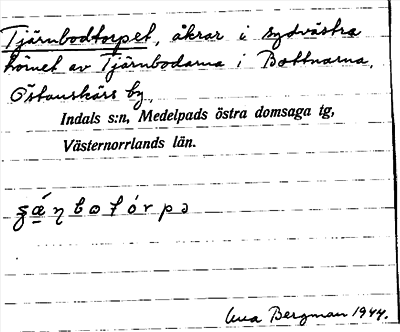 Tjärnbodtorpet, åkrar i sydvästra
hörnet av Tjärnbodarna i Bottnarna,
Östanskärs by.
Indals s:n, Medelpads östra domsaga tg,
Västernorrlands län.
Bergman 1944.